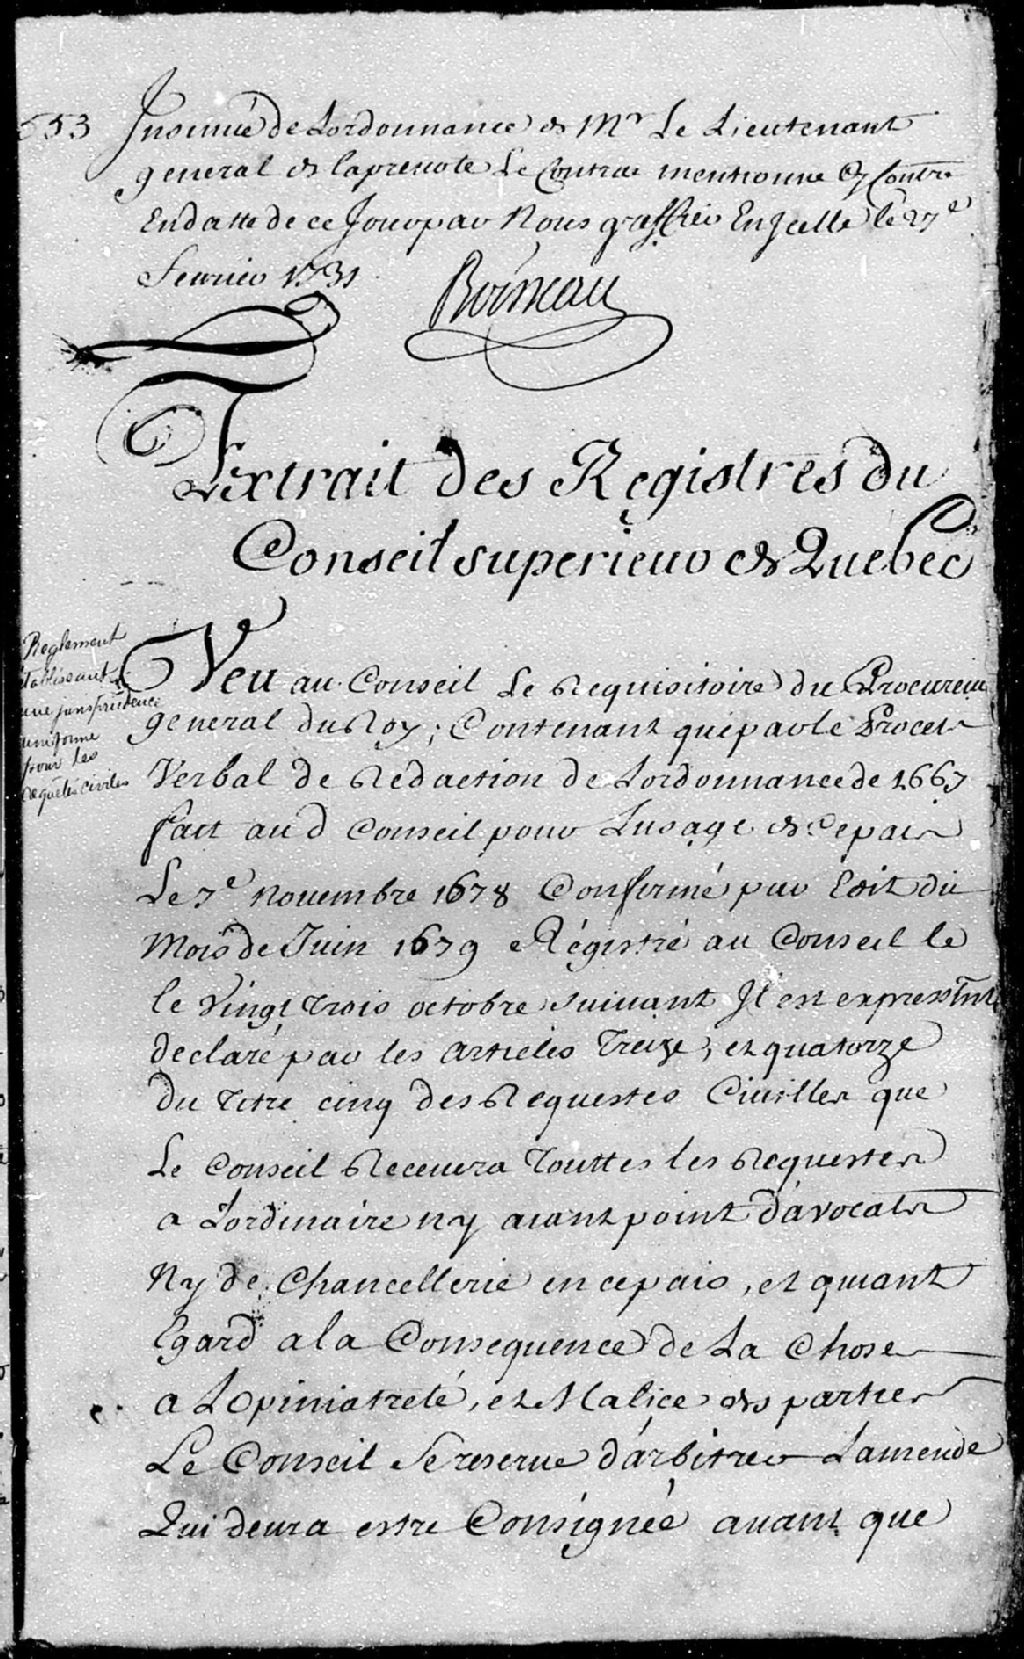 553 Insinué de Lordonnance de Mr Le Lieutenant
general de la prevoté Le Contrat mentionné Cy Contre
En datte de ce Jour par Nous greffier En Jcelle le 27e
fevrier 1731
Boisseau
Extrait des Registres du
Conseil superieur de Quebec
Reglement
établissant
une jurisprudence
uniforme
pour les
requetes civiles
Veu au Conseil Le Requisitoire du Procureur
general du Roy; Contenant que par le Proces
Verbal de Redaction de Lordonnance de 1667
fait aud Conseil pour Lusage de Ce pais
Le 7e novembre 1678 Confirmé par Edit du
Mois de Juin 1679 Régistré au Conseil le
le Vingt trois octobre suivant Jl est expressemt
declaré par les articles Treize, et quatorze
du titre cinq des Requestes Civilles que
Le Conseil Recevera Touttes les Requestes
a Lordinaire ny aiant point d'avocats
Ny de Chancellerie en ce pais, et quiant
Egard a la Consequence de La Chose
a Lopiniatreté, et Malice des parties
Le Conseil Se reserve d'arbitrer Lamende
Qui devra estre Consignée avant que